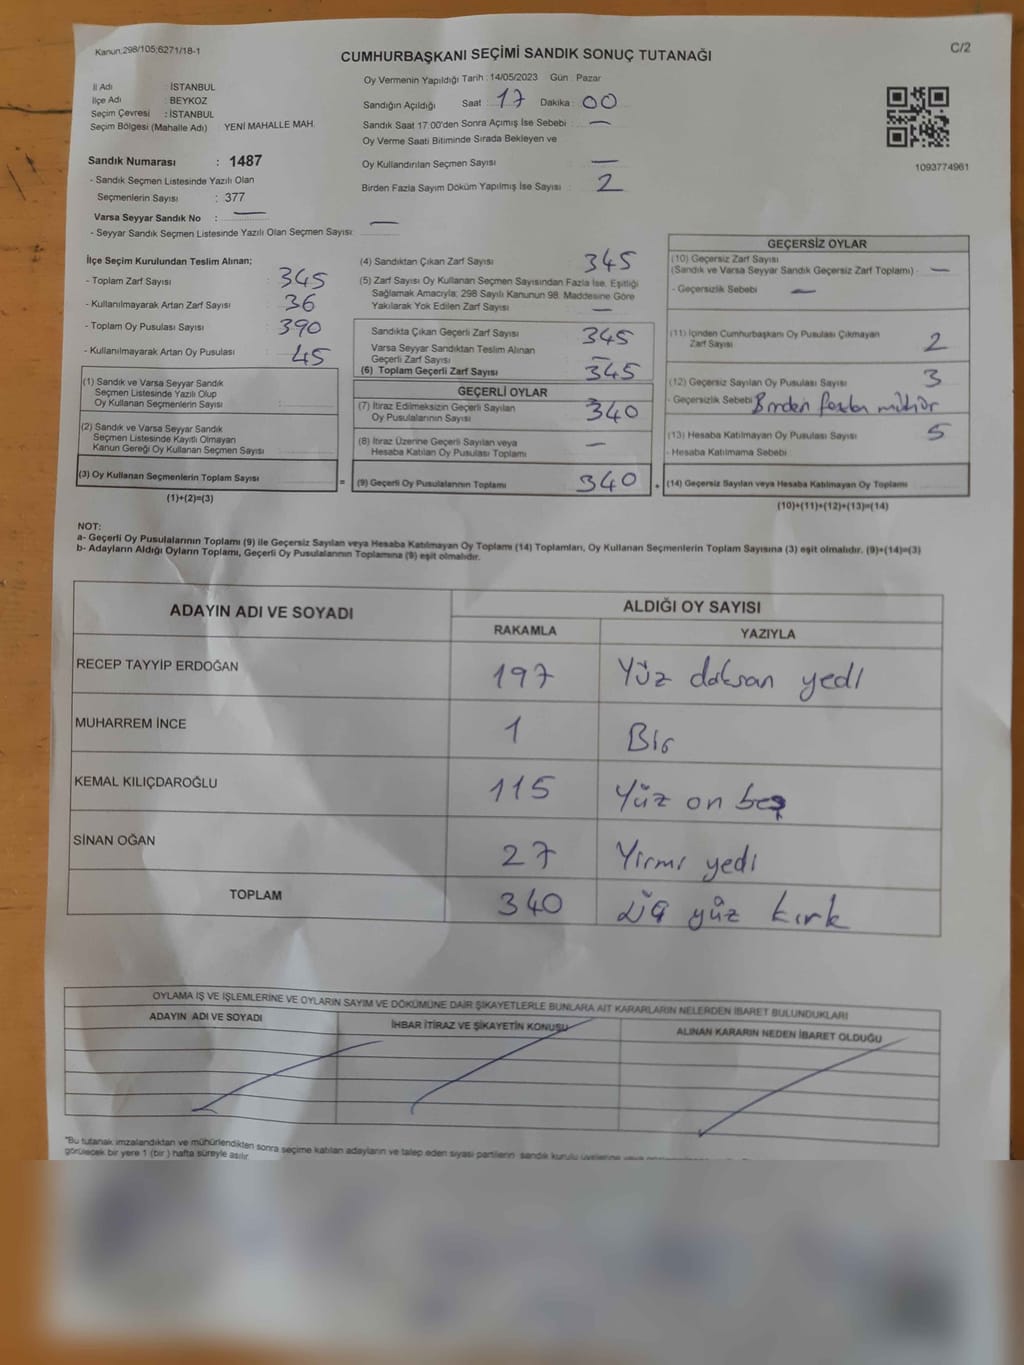 Kanun:298/105;6271/18-1
C/2
CUMHURBAŞKANI SEÇİMİ SANDIK SONUÇ TUTANAĞI
İl Adı : İSTANBUL
İlçe Adı : BEYKOZ
Seçim Çevresi : İSTANBUL
Seçim Bölgesi (Mahalle Adı) YENİ MAHALLE MAH.
Sandık Numarası : 1487
- Sandık Seçmen Listesinde Yazılı Olan
Seçmenlerin Sayısı : 377
Varsa Seyyar Sandık No : —
- Seyyar Sandık Seçmen Listesinde Yazılı Olan Seçmen Sayısı: —
Oy Vermenin Yapıldığı Tarih : 14/05/2023 Gün : Pazar
Sandığın Açıldığı Saat : 17 Dakika : 00
Sandık Saat 17:00'den Sonra Açımış İse Sebebi : —
Oy Verme Saati Bitiminde Sırada Bekleyen ve
Oy Kullandırılan Seçmen Sayısı —
Birden Fazla Sayım Döküm Yapılmış İse Sayısı : 2
1093774961
İlçe Seçim Kurulundan Teslim Alınan;
- Toplam Zarf Sayısı : 345
- Kullanılmayarak Artan Zarf Sayısı : 36
- Toplam Oy Pusulası Sayısı : 390
- Kullanılmayarak Artan Oy Pusulası : 45
(1) Sandık ve Varsa Seyyar Sandık
Seçmen Listesinde Yazılı Olup
Oy Kullanan Seçmenlerin Sayısı :
(2) Sandık ve Varsa Seyyar Sandık
Seçmen Listesinde Kayıtlı Olmayan
Kanun Gereği Oy Kullanan Seçmen Sayısı
(3) Oy Kullanan Seçmenlerin Toplam Sayısı
(1)+(2)=(3)
(4) Sandıktan Çıkan Zarf Sayısı 345
(5) Zarf Sayısı Oy Kullanan Seçmen Sayısından Fazla İse, Eşitliği
Sağlamak Amacıyla; 298 Sayılı Kanunun 98. Maddesine Göre
Yakılarak Yok Edilen Zarf Sayısı —
Sandıkta Çıkan Geçerli Zarf Sayısı 345
Varsa Seyyar Sandıktan Teslim Alınan
Geçerli Zarf Sayısı —
(6) Toplam Geçerli Zarf Sayısı 345
GEÇERLİ OYLAR
(7) İtiraz Edilmeksizin Geçerli Sayılan
Oy Pusulalarının Sayısı 340
(8) İtiraz Üzerine Geçerli Sayılan veya
Hesaba Katılan Oy Pusulası Toplamı —
= (9) Geçerli Oy Pusulalarının Toplamı 340 +
GEÇERSİZ OYLAR
(10) Geçersiz Zarf Sayısı
(Sandık ve Varsa Seyyar Sandık Geçersiz Zarf Toplamı) —
- Geçersizlik Sebebi —
(11) İçinden Cumhurbaşkanı Oy Pusulası Çıkmayan
Zarf Sayısı 2
(12) Geçersiz Sayılan Oy Pusulası Sayısı 3
- Geçersizlik Sebebi Birden fazla mühür
(13) Hesaba Katılmayan Oy Pusulası Sayısı 5
- Hesaba Katılmama Sebebi
(14) Geçersiz Sayılan veya Hesaba Katılmayan Oy Toplamı
(10)+(11)+(12)+(13)=(14)
NOT:
a- Geçerli Oy Pusulalarının Toplamı (9) ile Geçersiz Sayılan veya Hesaba Katılmayan Oy Toplamı (14) Toplamları, Oy Kullanan Seçmenlerin Toplam Sayısına (3) eşit olmalıdır. (9)+(14)=(3)
b- Adayların Aldığı Oyların Toplamı, Geçerli Oy Pusulalarının Toplamına (9) eşit olmalıdır.
ADAYIN ADI VE SOYADI ALDIĞI OY SAYISI
RAKAMLA YAZIYLA
RECEP TAYYİP ERDOĞAN 197 Yüz doksan yedi
MUHARREM İNCE 1 Bir
KEMAL KILIÇDAROĞLU 115 Yüz on beş
SİNAN OĞAN 27 Yirmi yedi
TOPLAM 340 Üç yüz kırk
OYLAMA İŞ VE İŞLEMLERİNE VE OYLARIN SAYIM VE DÖKÜMÜNE DAİR ŞİKAYETLERLE BUNLARA AİT KARARLARIN NELERDEN İBARET BULUNDUKLARI
ADAYIN ADI VE SOYADI İHBAR İTİRAZ VE ŞİKAYETİN KONUSU ALINAN KARARIN NEDEN İBARET OLDUĞU
"Bu tutanak imzalandıktan ve mühürlendikten sonra seçime katılan adayların ve talep eden siyasi partilerin sandık kurulu üyelerine veya
görülecek bir yere 1 (bir) hafta süreyle asılır.